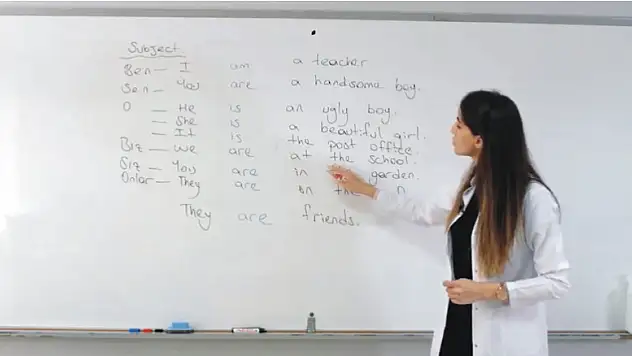 Subject
Ben — I am a teacher
Sen — You are a handsome boy.
O — He is an ugly boy.
— She is a beautiful girl.
— It is the post office.
Biz — We are at the school.
Siz — You are in garden.
Onlar — They are on the n
They are friends.